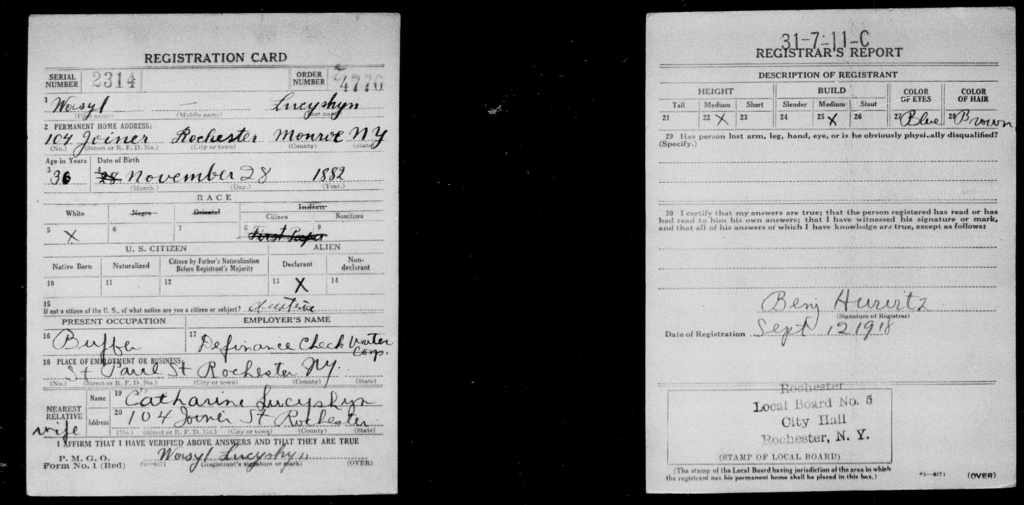 REGISTRATION CARD
SERIAL NUMBER 2314 ORDER NUMBER 4770
1 Wasyl — Lucyshyn
(First name) (Middle name) (Last name)
2 PERMANENT HOME ADDRESS:
104 Joiner Rochester Monroe NY
(No.) (Street or R. F. D. No.) (City or town) (County) (State)
Age in Years Date of Birth
3 36 4 28 November 28 1882
(Month.) (Day.) (Year.)
RACE
White Negro Oriental Indian
Citizen Noncitizen
5 X 6 7 8 First Paper 9
U. S. CITIZEN ALIEN
Native Born Naturalized Citizen by Father's Naturalization Before Registrant's Majority Declarant Non-declarant
10 11 12 13 X 14
15
If not a citizen of the U. S., of what nation are you a citizen or subject? Austria
PRESENT OCCUPATION EMPLOYER'S NAME
16 Buffer 17 Definance Check Writer Corp.
18 PLACE OF EMPLOYMENT OR BUSINESS:
St Paul St Rochester NY.
(No.) (Street or R. F. D. No.) (City or town) (County) (State)
NEAREST RELATIVE Name 19 Catharine Lucyshyn
wife Address 20 104 Joiner St Rochester
(No.) (Street or R. F. D. No.) (City or town) (County) (State)
I AFFIRM THAT I HAVE VERIFIED ABOVE ANSWERS AND THAT THEY ARE TRUE
P. M. G. O.
Form No. 1 (Red) Wasyl Lucyshyn
(Registrant's signature or mark) (OVER)
31-7-11-C
REGISTRAR'S REPORT
DESCRIPTION OF REGISTRANT
HEIGHT BUILD COLOR OF EYES COLOR OF HAIR
Tall Medium Short Slender Medium Stout
21 22 X 23 24 25 X 26 27 Blue 28 Brown
29 Has person lost arm, leg, hand, eye, or is he obviously physically disqualified?
(Specify.)
30 I certify that my answers are true; that the person registered has read or has
had read to him his own answers; that I have witnessed his signature or mark,
and that all of his answers of which I have knowledge are true, except as follows:
Benj Hurwitz
(Signature of Registrar)
Date of Registration Sept 12 1918
Rochester
Local Board No. 5
City Hall
Rochester, N. Y.
(STAMP OF LOCAL BOARD)
(The stamp of the Local Board having jurisdiction of the area in which
the registrant has his permanent home shall be placed in this box.)
(OVER)